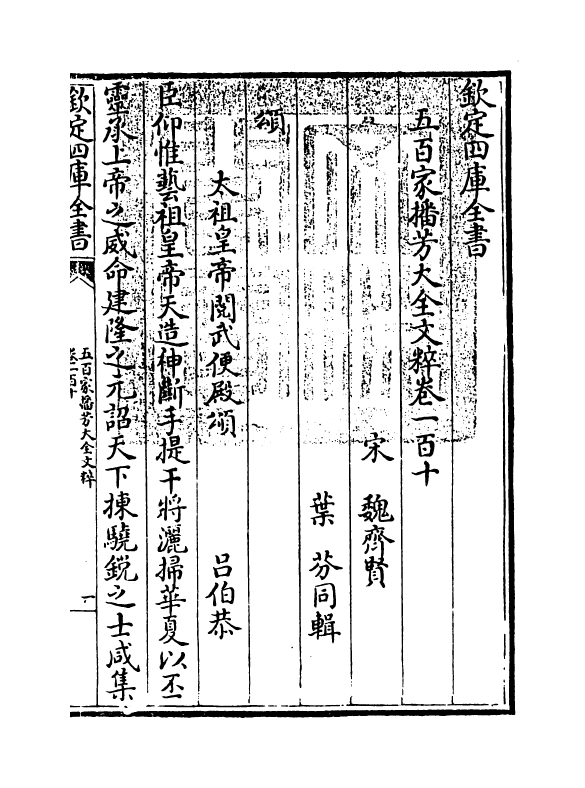 欽定四庫全書
五百家播芳大全文粹卷一百十
宋　魏齊賢
葉　芬同輯
頌
太祖皇帝閱武便殿頌　　呂伯恭
臣仰惟藝祖皇帝天造神斷手提干將灑掃華夏以丕
靈承上帝之威命建隆之元詔天下揀驍銳之士咸集
欽定四庫全書
五百家播芳大全文粹
卷一百十
一